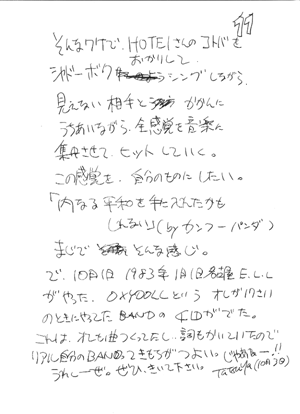 11
そんなワケで、HOTEIさんのコトバを
おかりして、
シャドーボクシングしながら、
見えない相手と かかんに
うちあいながら、全感覚を音楽に
集中させて、ヒットしていく。
この感覚を、自分のものにしたい。
「内なる平和を手に入れたかも
しれない」(by カンフーパンダ)
まじで そんな感じ。
で、10月1日 1983年1月1日名古屋E.L.L
がやった、OXYDOLLという オレが19さい
のときにやってたBANDの CDがでた。
これは、オレも曲つくってたし、詞もかいていたので
リアル自分のBANDってきもちがつよい。じゃあなー!!
うれしーぜ。ぜひ、きいて下さい。
Tatsuya(10月3日)